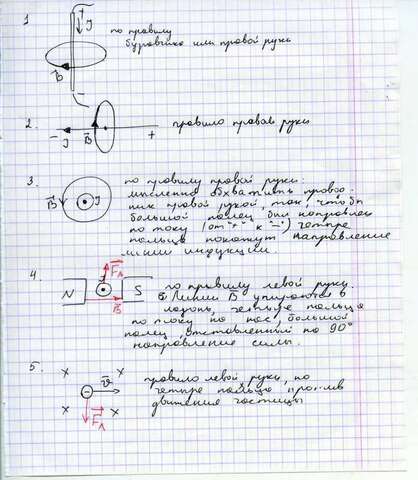 1
+
I
по правилу
буравчика или правой руки
B
−
2.
− I B +
правило правой руки
3.
B I
по правилу правой руки.
мысленно обхватить провод-
ник правой рукой, так, чтобы
большой палец был направлен
по току (от "+" к "−") четыре
пальца покажут направление
линии индукции.
4
N Fл S
B
по правилу левой руки.
Линии B упираются в
ладонь, четыре пальца
по току на нас, большой
палец, отставленный на 90°
направление силы.
5.
x x
v
−
x x
Fл
правило левой руки, но
четыре пальца против
движения частицы